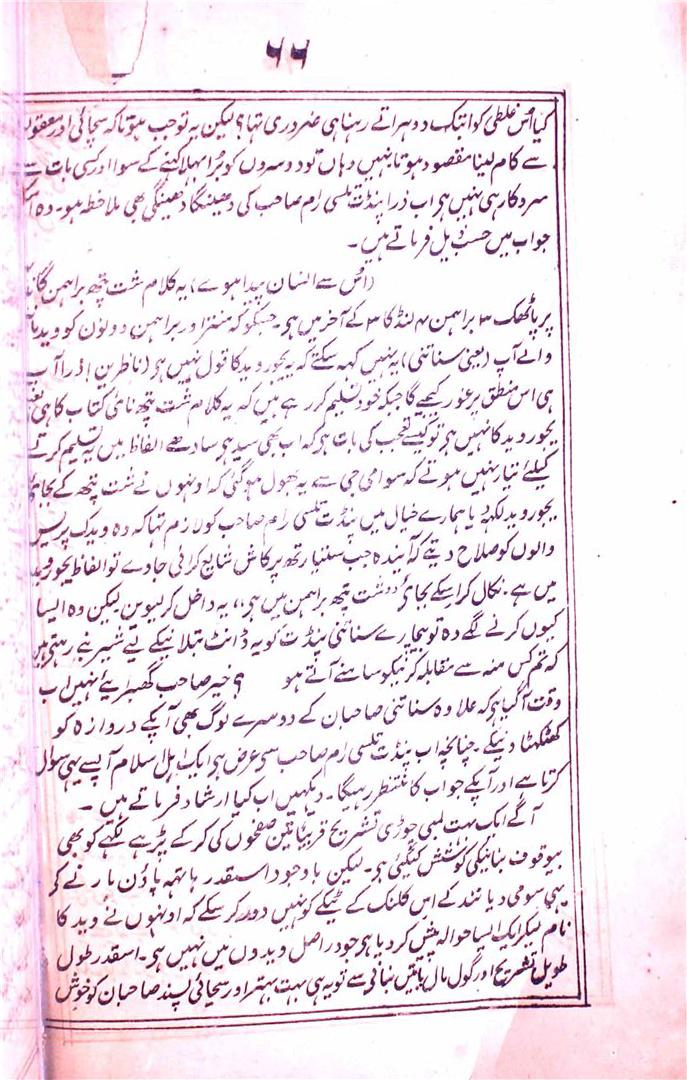 ۶۶
کیا اس غلطی کو ابتک دوہراتے رہنا ہی ضروری تہا؟ لیکن یہ توجب ہوتا کہ سچائی اور معقول
سے کام لینا مقصود ہوتا نہیں وہاں تو دوسروں کو بُرا بہلا کہنے کے سوا اور کسی بات سے
سروکار ہی نہیں ہی اب ذرا پنڈت تلسی رام صاحب کی دھینگا دھینگی بھی ملاحظہ ہو۔ وہ
جواب میں حسب ذیل فرماتے ہیں۔
(اس سے انسان پیدا ہوے) یہ کلام شت پتھ براہمن کانڈ
پرپاٹھک ۳ براہمن ۴ کنڈکا ۳ کے آخر میں ہی۔ جبکو کہ منتر اور براہمن دونوں کو وید
والے آپ (یعنی سناتنی) یہ نہیں کہہ سکتے کہ یہ یجور وید کا قول نہیں ہی (ناظرین! ذرا آپ
ہی اس منطق پر غور کیجیے گا جبکہ خود تسلیم کر رہے ہیں کہ یہ کلام شت پتھ نامی کتاب کا ہی
یجور وید کا نہیں ہی تو کیسے تعجب کی بات ہی کہ اب بھی سیدہی سادہے الفاظ میں یہ تسلیم کرنے
کیلئے تیار نہیں ہوتے کہ سوامی جی سے یہ بھول ہوگئی کہ اونہوں نے شت پتھ کے بجائے
یجور وید لکہہ دیا ہمارے خیال میں پنڈت تلسی رام صاحب کو لازم تہا کہ وہ ویدک پریس
والوں کو صلاح دیتے کہ آیندہ جب ستیارتھ پرکاش شایع کرائی جاوے تو الفاظ یجور وید
میں ہے۔ نکال کر اسکے بجائے "شت پتھ براہمن میں ہی" یہ داخل کر لیویں لیکن وہ ایسا
کیوں کرنے لگے وہ تو بیچارے سناتنی پنڈت کو یہ ڈانٹ بتلانیکے لیے شیر بنے رہتے ہیں
کہ تم کس منہ سے مقابلہ کرنیکو سامنے آتے ہو ؟ خیر صاحب گھبرایئے نہیں اب
وقت آگیا ہی کہ علاوہ سناتنی صاحبان کے دوسرے لوگ بھی آپکے دروازہ کو
کھٹکھٹا دینگے۔ چنانچہ اب پنڈت تلسی رام صاحب سی عرض ہی ایک اہل اسلام آپسے یہی سوال
کرتا ہے اور آپکے جواب کا منتظر رہیگا۔ دیکہیں اب کیا ارشاد فرماتے ہیں۔
آگے ایک بہت لمبی چوڑی تشریح قریباً تین صفحوں کی کر کے پڑہے لکہے کو بھی
بیوقوف بنانیکی کوشش کیگئی ہی۔ لیکن باوجود اسقدر ہاتہہ پاؤں مارنے کے
یہی سوامی دیانند کے اس کلنک کے ٹیکے کو نہیں دور کر سکے کہ اونہوں نے وید کا
نام لیکر ایک ایسا حوالہ پیش کر دیا ہی جو دراصل ویدوں میں نہیں ہی۔ اسقدر طول
طویل تشریح اور گول مال باتیں بنانی سے تو یہ ہی بہت بہتر اور سچائی پسند صاحبان کو خوش